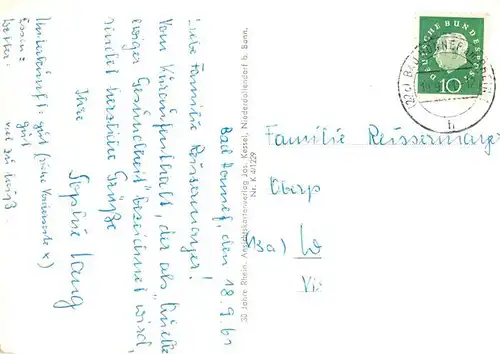 Bad Honnef, den 18.9.61
Liebe Familie Reissermayer!
Vom Kuraufenthalt, der als "Quelle
ewiger Gesundheit" bezeichnet wird,
sendet herzliche Grüße
Ihre
Sophie Lang
Unterkunft: gut (siehe Vorderseite x)
Essen: gut
Wetter: viel zu heiß.
30 Jahre Rhein. Ansichtskartenverlag Jos. Kessel, Niederdollendorf b. Bonn.
Nr. K 4/1229
DEUTSCHE BUNDESPOST
10
(22c) BAD HONNEF
Familie Reissermaye
Oberp
13a)